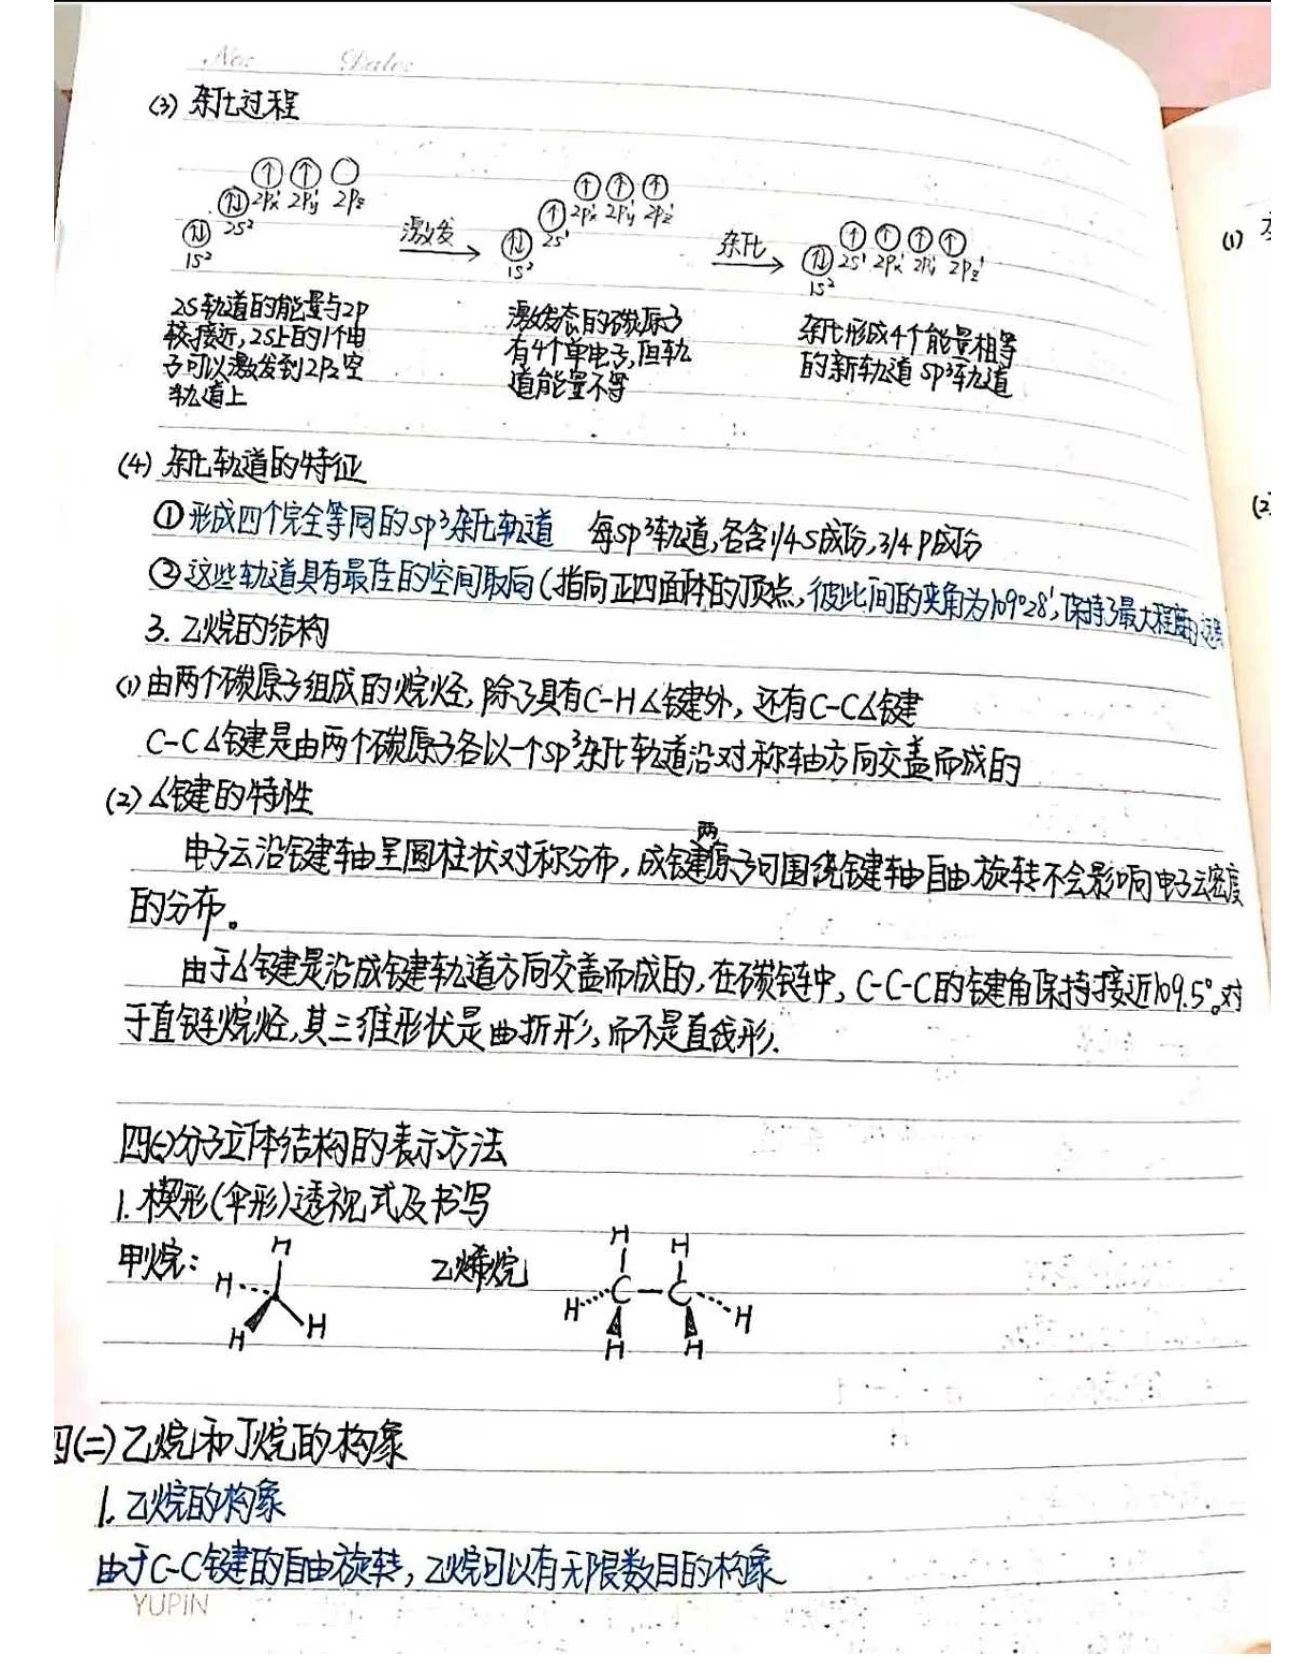 No: Date:
(3) 杂化过程
↑ ↑
↑↓ 2Px¹ 2Py¹ 2Pz
↑↓ 2S²
1S²
激发
↑ ↑ ↑
↑ 2Px¹ 2Py¹ 2Pz¹
↑↓ 2S¹
1S²
杂化
↑ ↑ ↑ ↑
↑↓ 2S¹ 2Px¹ 2Py¹ 2Pz¹
1S²
2S轨道的能量与2P
较接近,2S上的1个电
子可以激发到2Pz空
轨道上
激发态的碳原子
有4个单电子,但轨
道能量不等
杂化形成4个能量相等
的新轨道 SP³轨道
(4) 杂化轨道的特征
①形成四个完全等同的sp³杂化轨道 每sp³轨道,各含1/4S成份,3/4P成份
②这些轨道具有最佳的空间取向(指向正四面体的顶点,彼此间的夹角为109°28',保持了最大程度的远离
3. 乙烷的结构
(1) 由两个碳原子组成的烷烃,除了具有C-Hσ键外,还有C-Cσ键
C-Cσ键是由两个碳原子各以一个sp³杂化轨道沿对称轴方向交盖而成的
(2) σ键的特性
电子云沿键轴呈圆柱状对称分布,成键两原子可围绕键轴自由旋转不会影响电子云密度
的分布。
由于σ键是沿成键轨道方向交盖而成的,在碳链中,C-C-C的键角保持接近109.5°。对
于直链烷烃,其三维形状是曲折形,而不是直线形.
四(一)分子立体结构的表示方法
1. 楔形(伞形)透视式及书写
甲烷: H H H H
乙烷 H H H C C H H H
四(二)乙烷和丁烷的构象
1. 乙烷的构象
由于C-C键的自由旋转,乙烷可以有无限数目的构象
YUPIN
(1)
(2)